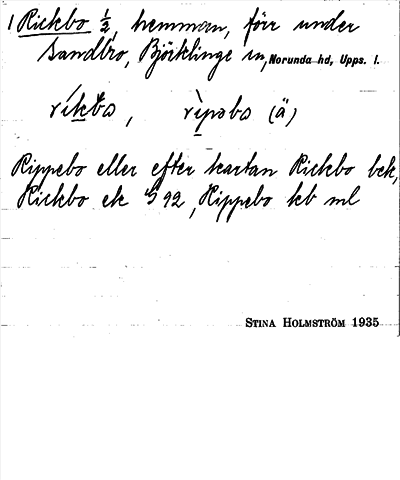 1 Rickbo 1/2, hemman, förr under
Sandbro, Björklinge sn, Norunda hd, Upps. l.
ríkbo, rìpəbo (ä)
Rippebo eller efter kartan Rickbo bek,
Rickbo ek G 92, Rippebo kb ml
STINA HOLMSTRÖM 1935